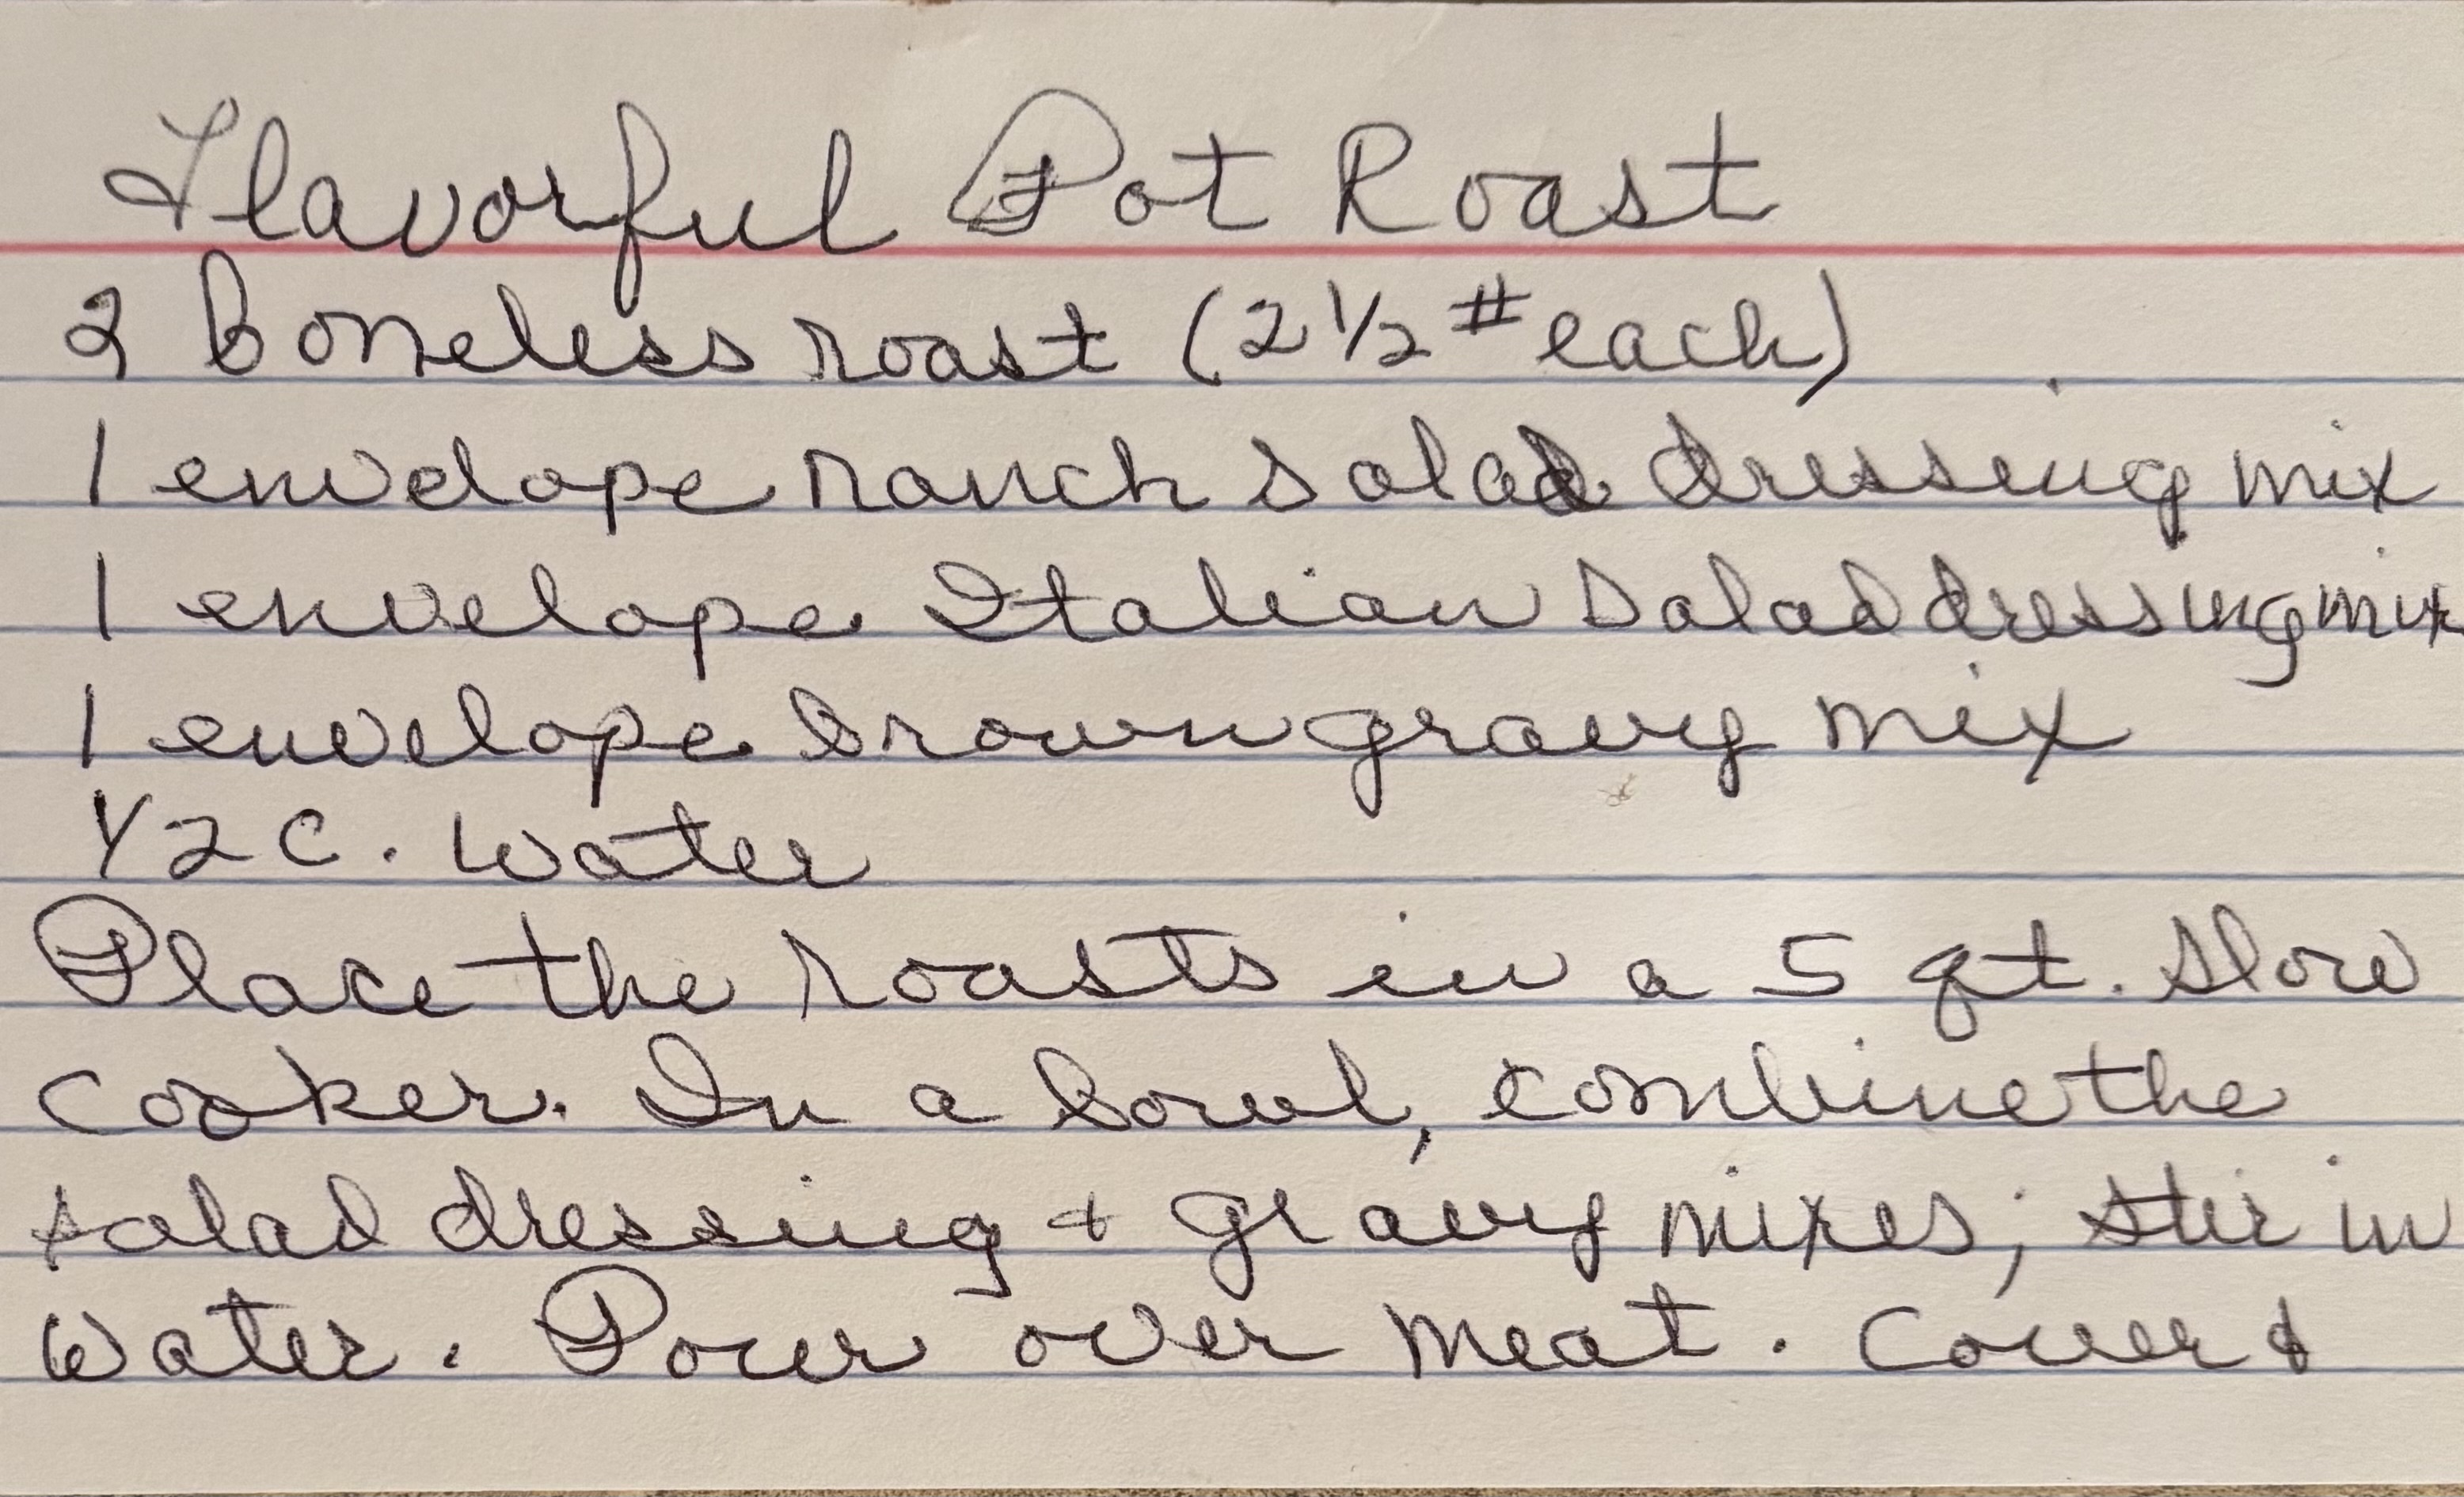 Flavorful Pot Roast
2 Boneless roast (2 1/2 # each)
1 envelope ranch salad dressing mix
1 envelope Italian Salad dressing mix
1 envelope brown gravy mix
1/2 C. Water
Place the roasts in a 5 qt. slow
cooker. In a bowl, combine the
salad dressing & gravy mixes; stir in
Water. Pour over meat. Cover &